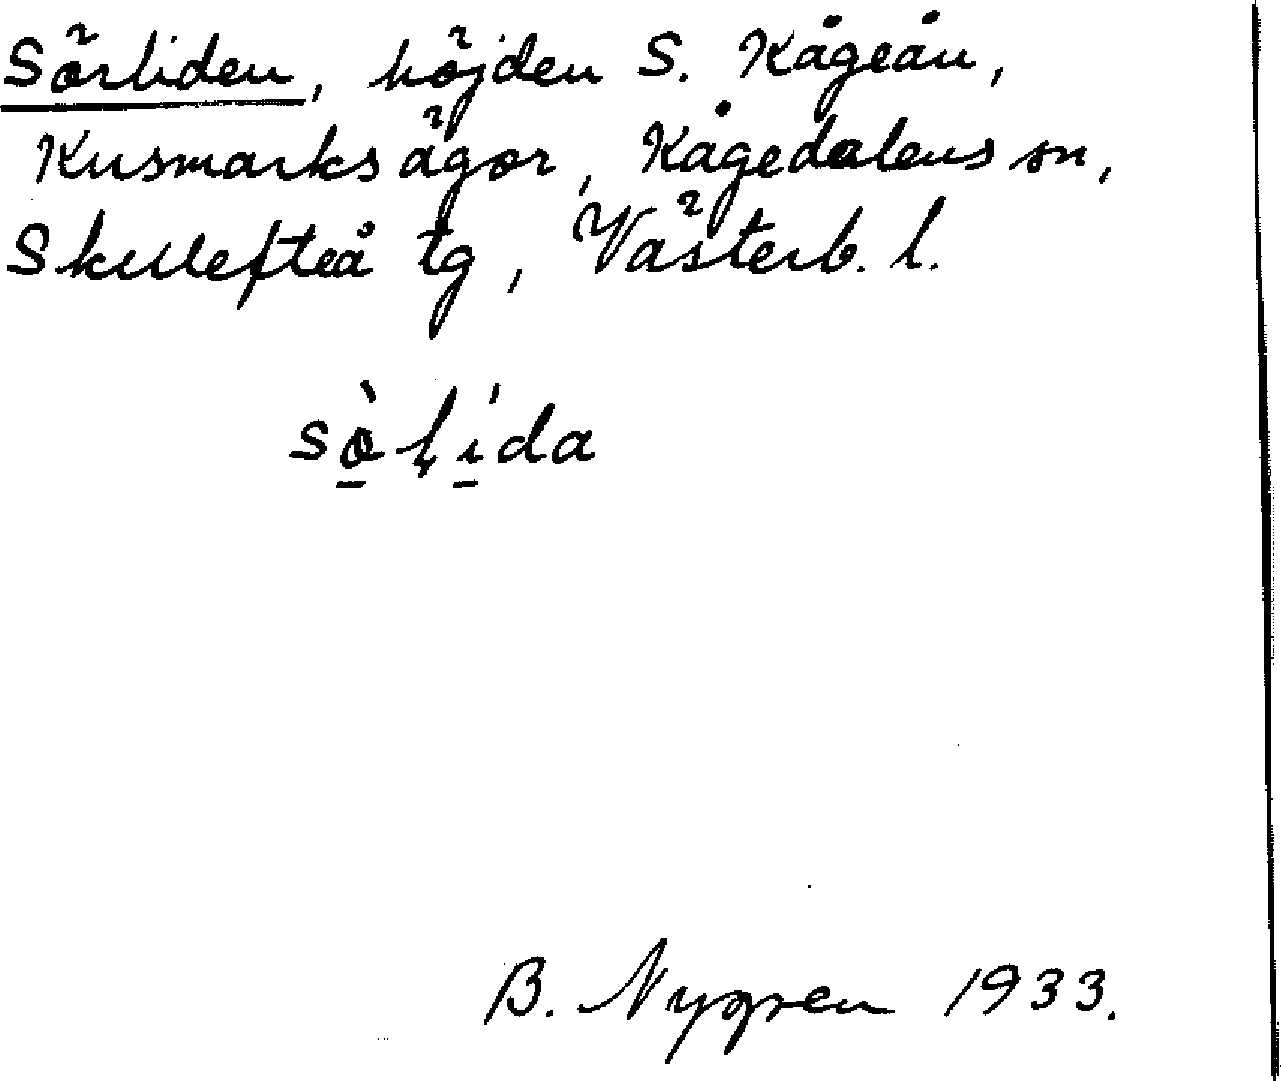 Sörliden, höjden S. Kågeån,
Kusmarks ägor, Kågedalens sn,
Skellefteå tg, Västerb. l.
sò̱ḷí̱da
B. Nygren 1933.